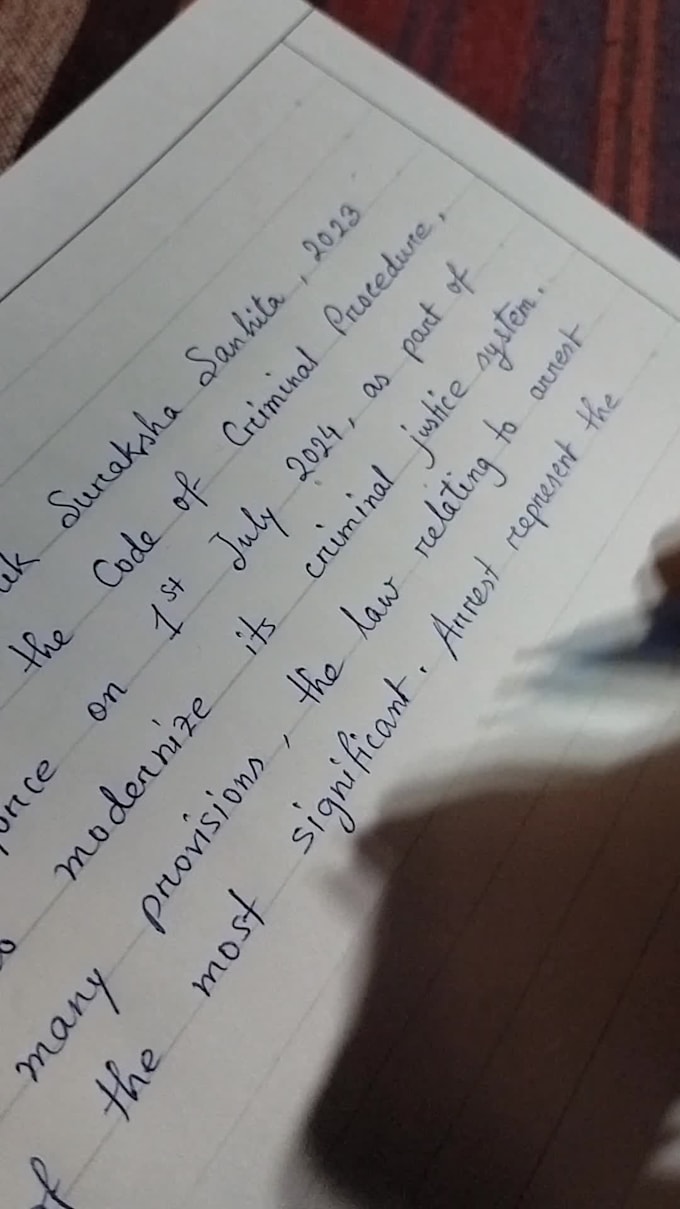 Suraksha Sanhita, 2023
the Code of Criminal Procedure,
on 1st July 2024, as part of
modernize its criminal justice system.
many provisions, the law relating to arrest
the most significant. Arrest represent the